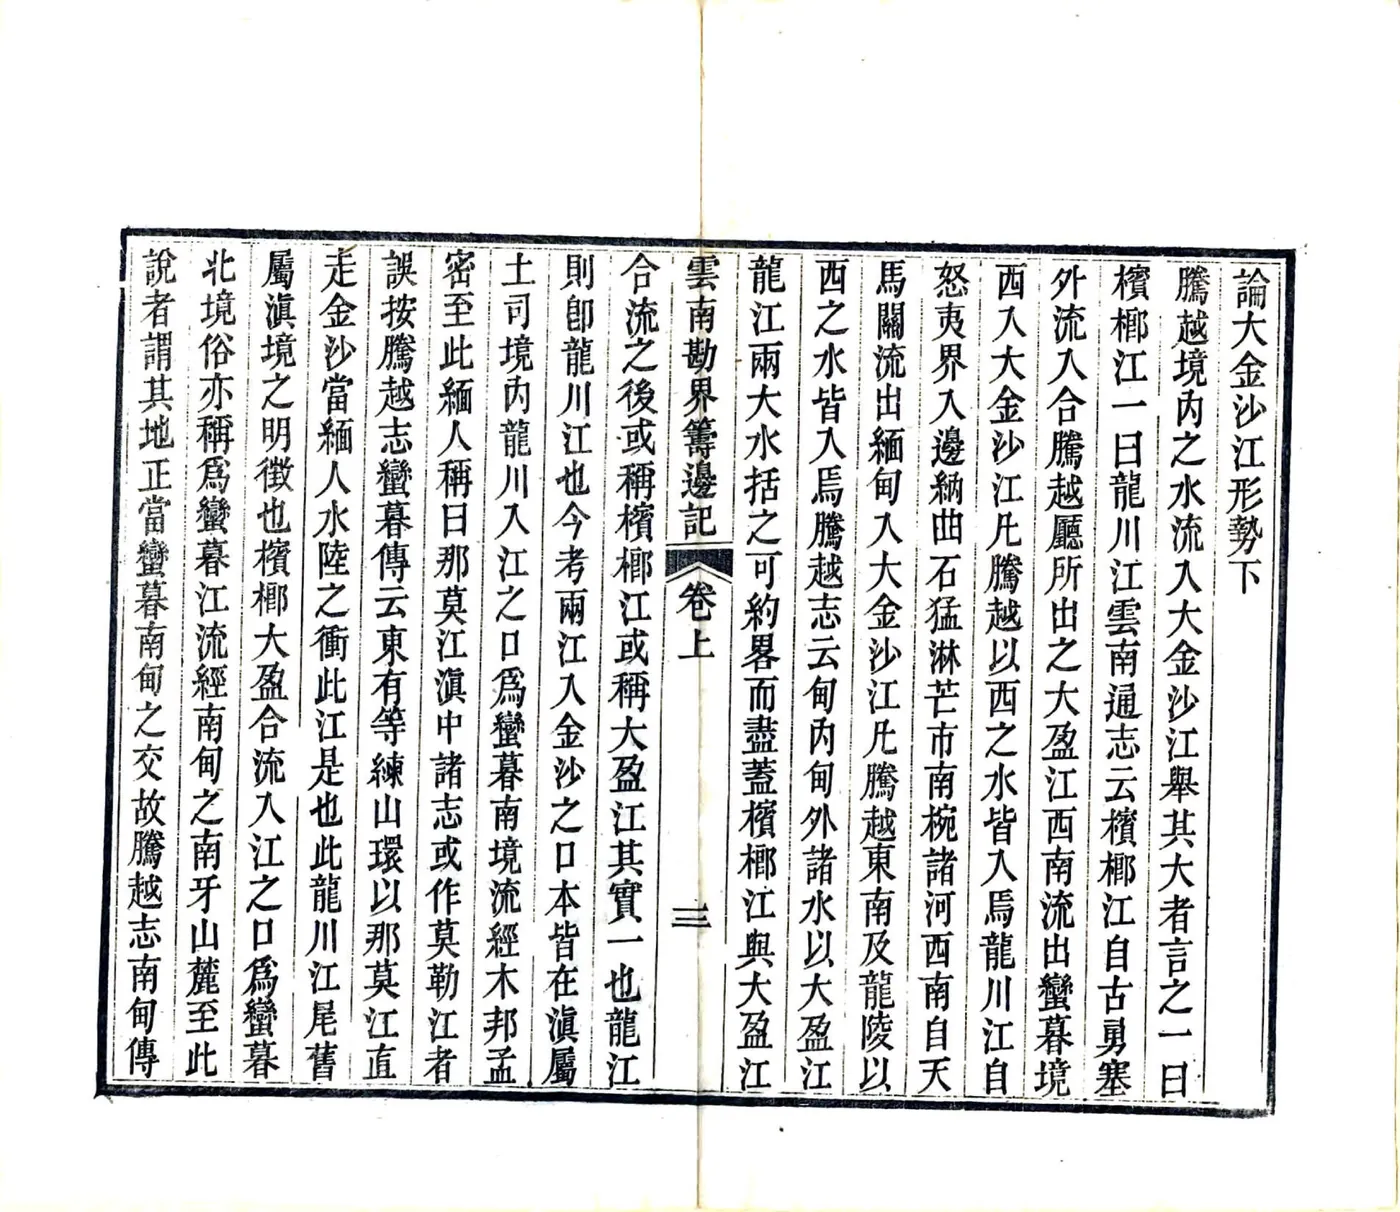 論大金沙江形勢下
騰越境內之水流入大金沙江舉其大者言之一曰
檳榔江一曰龍川江雲南通志云檳榔江自古勇塞
外流入合騰越廳所出之大盈江西南流出蠻暮境
西入大金沙江凡騰越以西之水皆入焉龍川江自
怒夷界入邊納曲石猛淋芒市南椀諸河西南自天
馬關流出緬甸入大金沙江凡騰越東南及龍陵以
西之水皆入焉騰越志云甸內甸外諸水以大盈江
龍江兩大水括之可約畧而盡蓋檳榔江與大盈江
雲南勘界籌邊記 卷上 三
合流之後或稱檳榔江或稱大盈江其實一也龍江
則卽龍川江也今考兩江入金沙之口本皆在滇屬
土司境內龍川入江之口爲蠻暮南境流經木邦孟
密至此緬人稱曰那莫江滇中諸志或作莫勒江者
誤按騰越志蠻暮傳云東有等練山環以那莫江直
走金沙當緬人水陸之衝此江是也此龍川江尾舊
屬滇境之明徵也檳榔大盈合流入江之口爲蠻暮
北境俗亦稱爲蠻暮江流經南甸之南牙山麓至此
說者謂其地正當蠻暮南甸之交故騰越志南甸傳